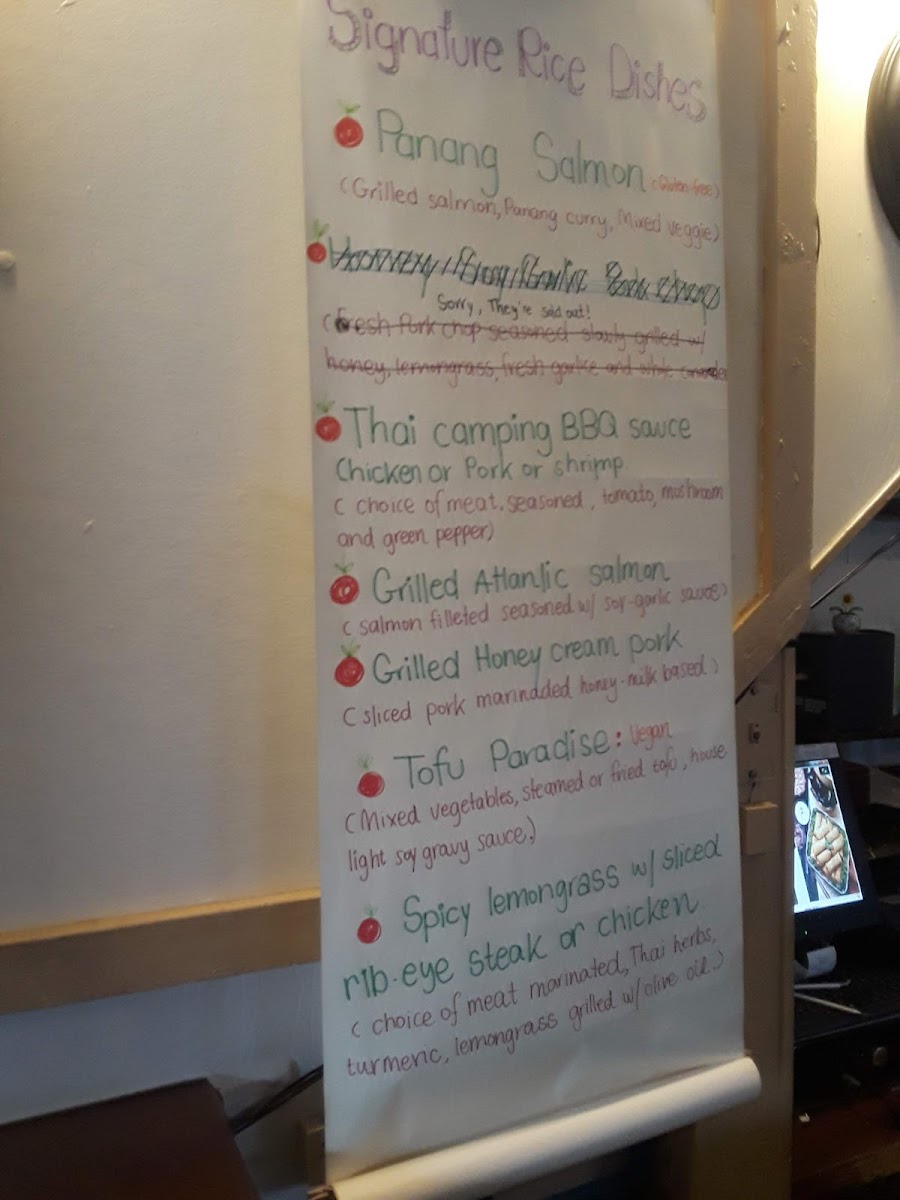 Signature Rice Dishes
Panang Salmon (Gluten-free)
(Grilled salmon, Panang curry, Mixed veggie)
Sorry, They're sold out!
(Fresh Pork chop seasoned slowly grilled w/
honey, lemongrass, fresh garlic and white
Thai camping BBQ sauce
Chicken or Pork or shrimp
( choice of meat, seasoned, tomato, mushroom
and green pepper)
Grilled Atlantic salmon
( salmon filleted seasoned w/ soy-garlic sauce)
Grilled Honey cream pork
(sliced pork marinaded honey-milk based)
Tofu Paradise: Vegan
(Mixed vegetables, steamed or fried tofu, house
light soy gravy sauce,)
Spicy lemongrass w/ sliced
rib-eye steak or chicken
( choice of meat marinated, Thai herbs,
turmeric, lemongrass grilled w/ olive oil.)